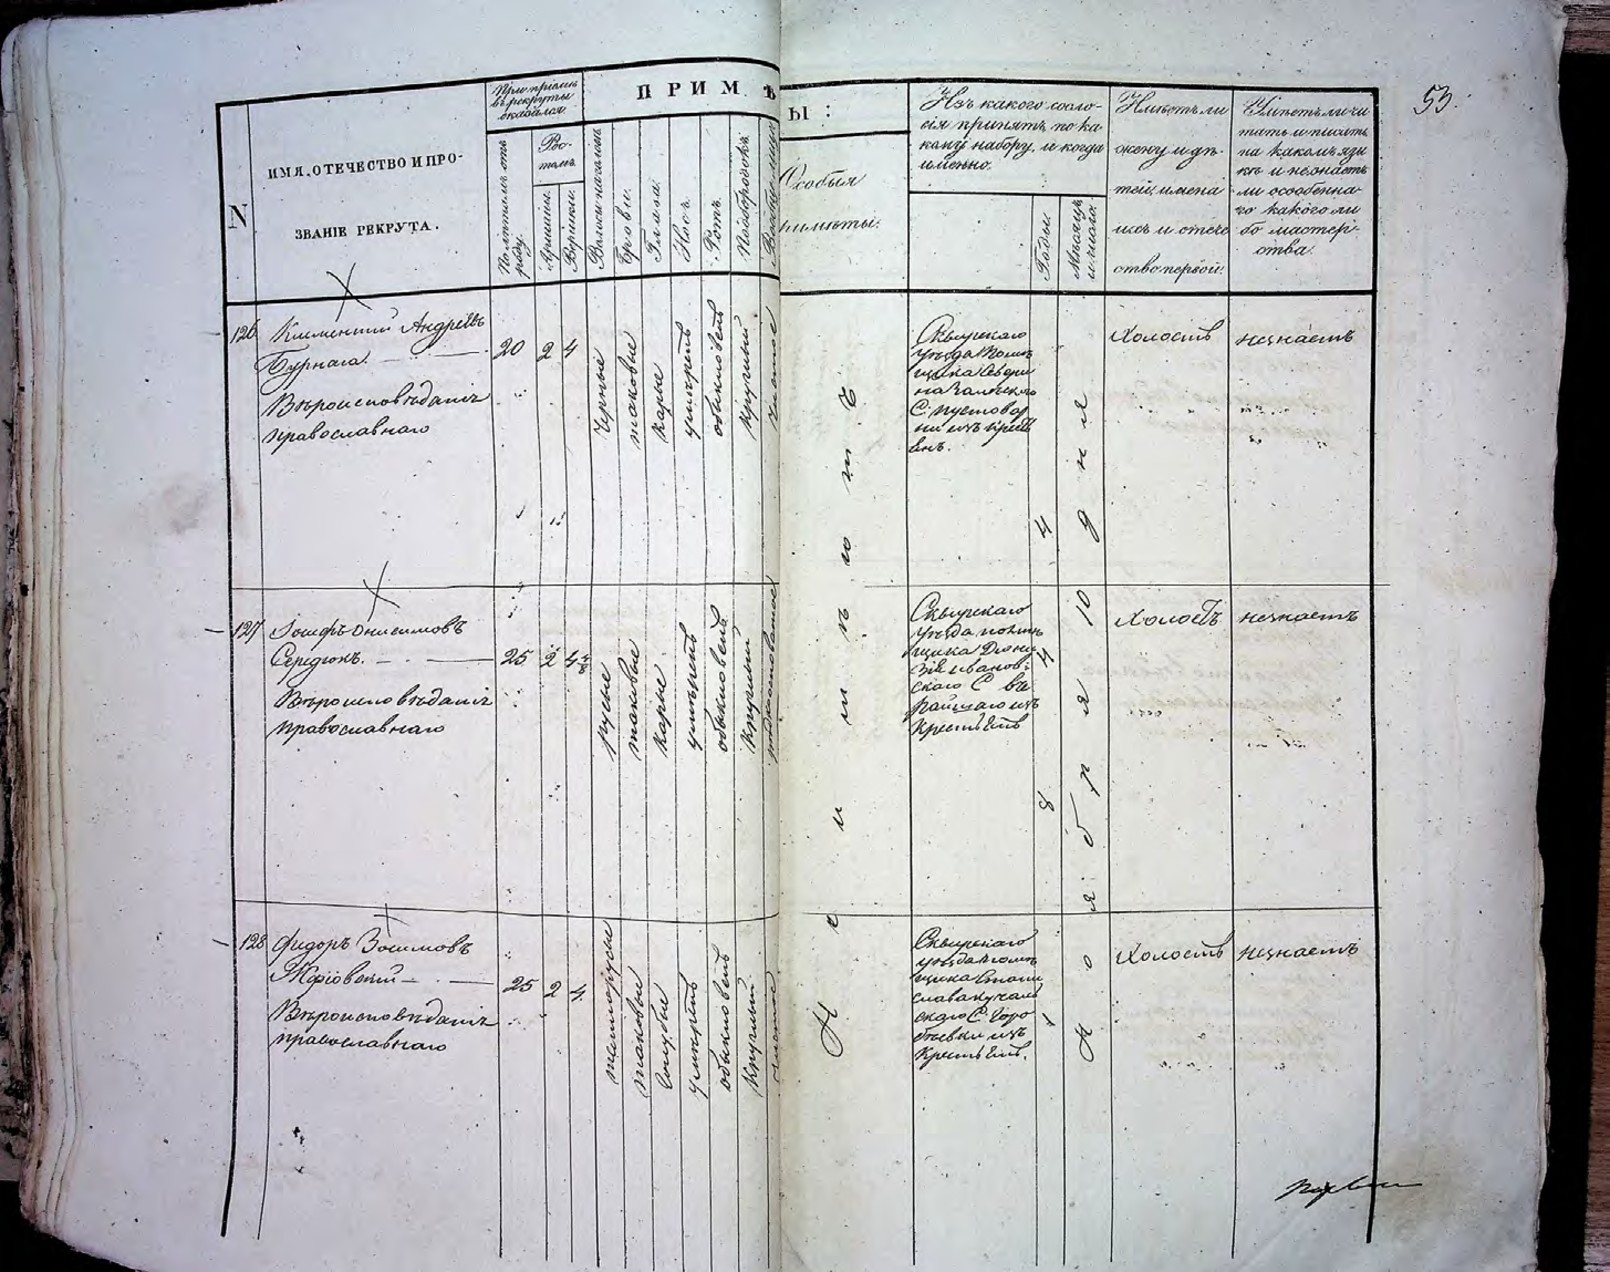 53.
N
ИМЯ, ОТЕЧЕСТВО И ПРО-
ЗВАНІЕ РЕКРУТА.
При пріемѣ
въ рекруты
оказался
По лѣтамъ отъ
роду.
Рос-
томъ
Аршины.
Вершки.
ПРИМѢ
ТЫ:
Волосы на голове
Брови.
Глаза.
Носъ.
Ротъ.
Подбородокъ.
Вообще лице
Особыя
примѣты.
Изъ какого сосло-
вія принятъ, по ка-
кому набору, и когда
именно.
Годы.
Мѣсяцъ
и число.
Имѣетъ ли
жену и дѣ-
тей, имена
ихъ и отече
ство первой.
Умѣетъ ли чи
тать и писать
на какомъ язы
кѣ и не знаетъ
ли особенна
го какого ли
бо мастер-
ства.
126 Климентий Андреевъ
Бурлага.
Вѣроисповѣданія
православнаго
20 2 4
Черные
таковые
карые
умѣренъ
обыкновенъ
круглый
чистое
Сквирскаго
уѣзда помѣ
щика Севери
на Залѣскаго
С. Пустовар
ни изъ крест
янъ.
Холостъ
незнаетъ
127 Іосифъ Онисимовъ
Середюкъ.
Вѣроисповѣданія
православнаго
25 2 4 4/8
русые
таковые
карые
умѣренъ
обыкновенъ
круглый
рябоковатое
Сквирскаго
уѣзда помѣ
щика Діони
зія Иванов-
скаго С
изъ
крестьянъ
Холостъ
незнаетъ
128 Фидоръ Зосимовъ
Вѣроисповѣданія
православнаго
25 2 4
темнорусые
таковые
голубые
умѣренъ
обыкновенъ
круглый
чистое
Сквирскаго
уѣзда помѣ
щика Стани
слава
скаго С. Горо
бievки изъ
крестьянъ.
Холостъ
незнаетъ
Не имѣетъ
1844
Ноября 10 дня